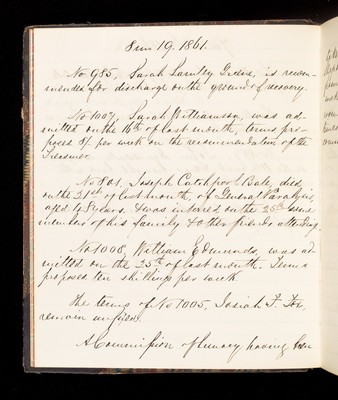 19. 1861.
No 985, Sarah Lamley Grace, is recom-
mended for discharge on the ground of recovery.
No 1007, Sarah Williamson, was ad-
mitted on the 16th of last month, terms pro-
posed 8/ per week on the recommendation of the
Treasurer.
No 801, Joseph Catchpool Bale, died
on the 21st of last month, of General Paralysis,
aged years. & was interred on the 25th. Some
members of his family & other friends attending.
No 1008, William Edmunds, was ad-
mitted on the 25th of last month. Terms
proposed ten shillings per week.
The terms of No 1005, Josiah F. Fox,
remain unfixed.
A Commission of Lunacy having been